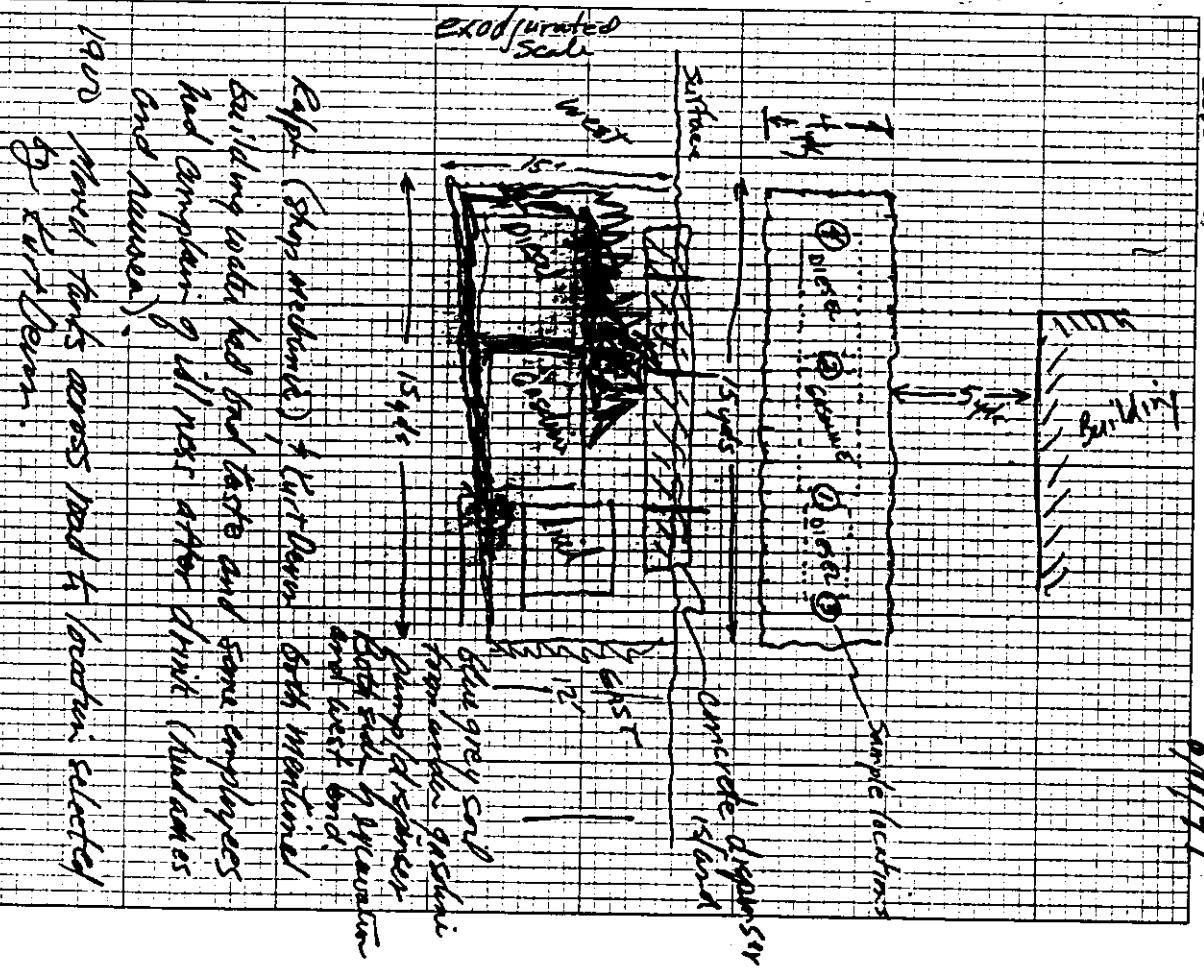 Building
5 yds
Sample locations
④ Diesel ② Gasoline ① Diesel ③
4 yds
15 yds
Surface
concrete dispenser
island
exodjurated
scale
West
EAST
15'
12'
Diesel
Gasoline
Diesel
15 yds
Blue grey soil
from under gasoline
pump/dispenser
Both side of excavation
and west end.
Ralph (shop mechanic) & Kurt Devin both mentioned
building water had bad taste and some employees
had complain of illness after drink (headaches
and nausea).
Moved tanks across road to location selected
by Kurt Devin.